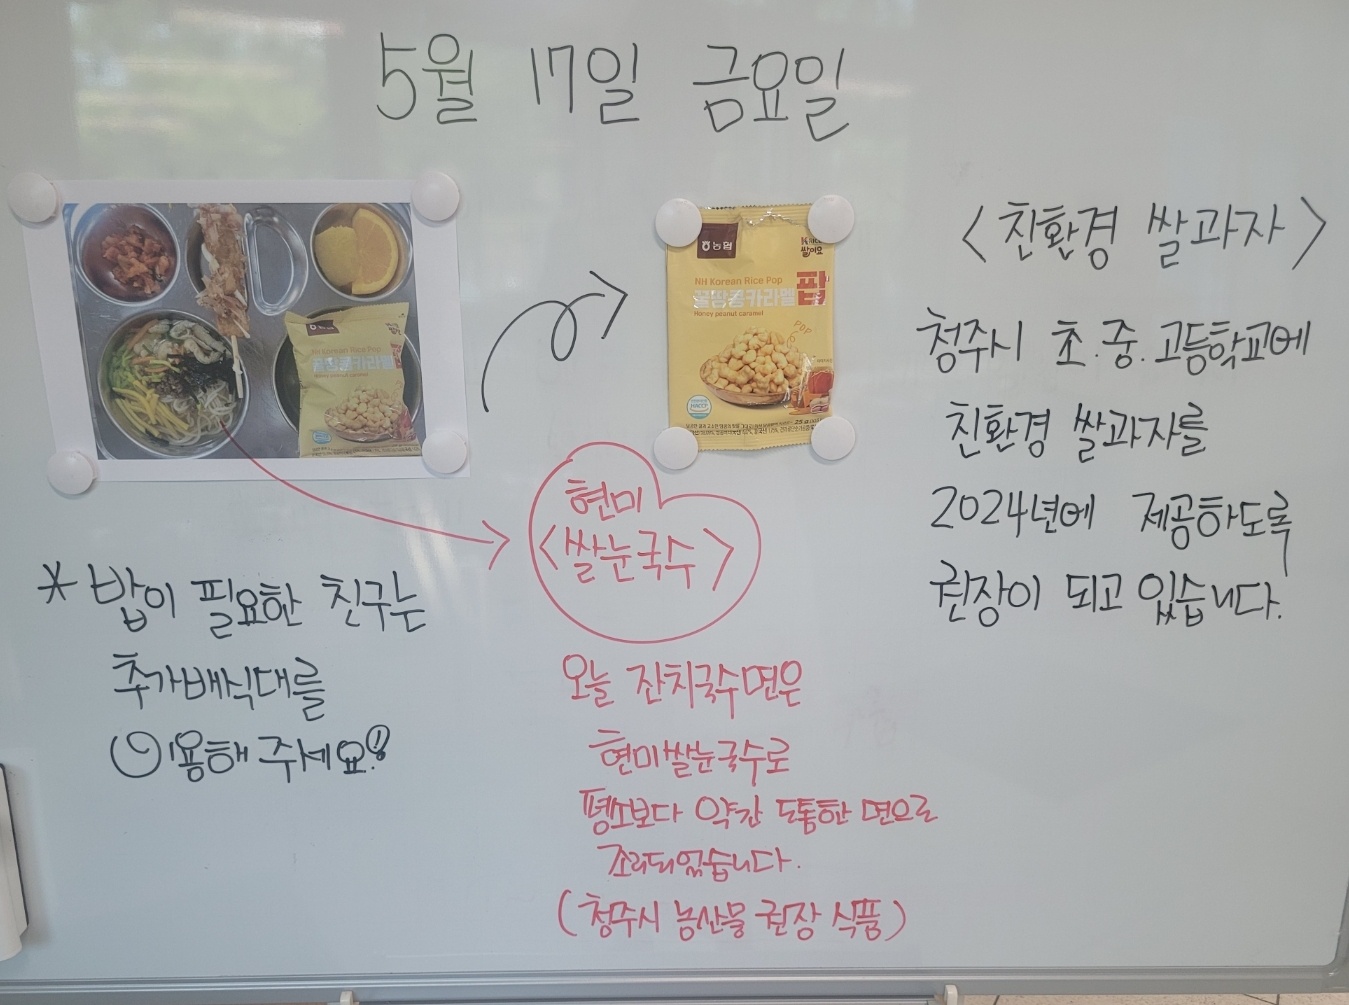 5월 17일 금요일
NH Korean Rice Pop
농협
NH Korean Rice Pop
꿀땅콩카라멜 팝
Honey peanut caramel
POP
HACCP
25g
〈친환경 쌀과자〉
청주시 초.중.고등학교에
친환경 쌀과자를
2024년에 제공하도록
권장이 되고 있습니다.
현미
〈쌀눈국수〉
오늘 잔치국수면은
현미쌀눈국수로
평소보다 약간 도톰한 면으로
조리되었습니다.
(청주시 농산물 권장 식품)
* 밥이 필요한 친구는
추가배식대를
이용해 주세요!